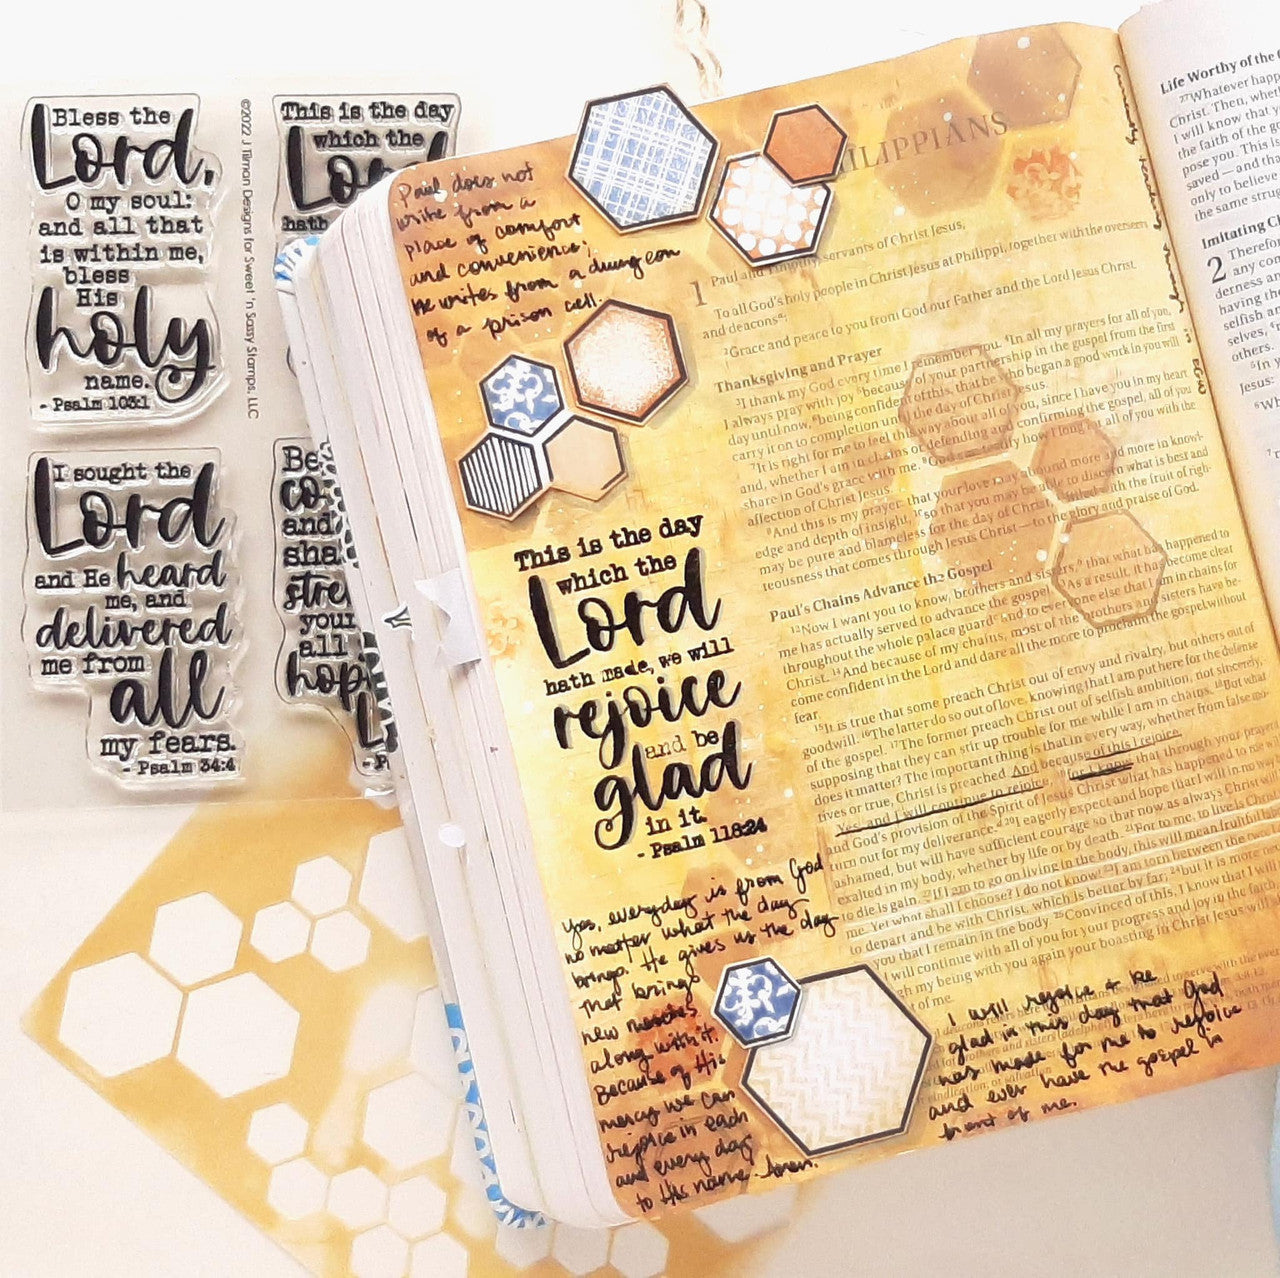 Bless the
Lord,
O my soul:
and all that
is within me,
bless
His
holy
name.
- Psalm 103:1
©2022 J Tilman Designs for Sweet 'n Sassy Stamps, LLC
This is the day
which the
Lo
hath
I sought the
Lord
and He heard
me, and
delivered
me from
all
my fears.
- Psalm 34:4
Be
co
and
sha
stre
your
all
hop
L
- P
Paul does not
write from a
place of comfort
and convenience;
he writes from a dungeon
of a prison cell.
This is the day
which the
Lord
hath made, we will
rejoice
and be
glad
in it.
- Psalm 118:24
Yes, everyday is from God
no matter what the day
brings. He gives us the day
that brings
new
along with it.
Because of His
mercy we can
rejoice in each
and every day
to His name Amen.
ILIPPIANS
1 Paul and Timothy, servants of Christ Jesus,
To all God's holy people in Christ Jesus at Philippi, together with the overseers
and deacons:
2Grace and peace to you from God our Father and the Lord Jesus Christ.
Thanksgiving and Prayer
3I thank my God every time I remember you. 4In all my prayers for all of you,
I always pray with joy 5because of your partnership in the gospel from the first
day until now, 6being confident of this, that he who began a good work in you will
carry it on to completion until the day of Christ Jesus.
7It is right for me to feel this way about all of you, since I have you in my heart
and, whether I am in chains or defending and confirming the gospel, all of you
share in God's grace with me. 8God can testify how I long for all of you with the
affection of Christ Jesus.
9And this is my prayer: that your love may abound more and more in knowl-
edge and depth of insight, 10so that you may be able to discern what is best and
may be pure and blameless for the day of Christ, 11filled with the fruit of right-
teousness that comes through Jesus Christ — to the glory and praise of God.
Paul's Chains Advance the Gospel
12Now I want you to know, brothers and sisters, that what has happened to
me has actually served to advance the gospel. 13As a result, it has become clear
throughout the whole palace guard and to everyone else that I am in chains for
Christ. 14And because of my chains, most of the brothers and sisters have be-
come confident in the Lord and dare all the more to proclaim the gospel without
fear.
15It is true that some preach Christ out of envy and rivalry, but others out of
goodwill. 16The latter do so out of love, knowing that I am put here for the defense
of the gospel. 17The former preach Christ out of selfish ambition, not sincerely,
supposing that they can stir up trouble for me while I am in chains. 18But what
does it matter? The important thing is that in every way, whether from false mo-
tives or true, Christ is preached. And because of this I rejoice.
Yes, and I will continue to rejoice, 19for I know that through your prayers
and God's provision of the Spirit of Jesus Christ what has happened to me wi
turn out for my deliverance. 20I eagerly expect and hope that I will in no way b
ashamed, but will have sufficient courage so that now as always Christ will
exalted in my body, whether by life or by death. 21For to me, to live is Chris
to die is gain. 22If I am to go on living in the body, this will mean fruitful l
me. Yet what shall I choose? I do not know! 23I am torn between the two
to depart and be with Christ, which is better by far; 24but it is more nec
you that I remain in the body. 25Convinced of this, I know that I will
I will continue with all of you for your progress and joy in the faith
gh my being with you again your boasting in Christ Jesus will
t of me.
I will rejoice & be
glad in this day that God
has made for me to rejoice
and ever have the gospel in
front of me.
Life Worthy of the
27Whatever happ
Christ. Then, whet
I will know that y
the faith of the g
pose you. This is
saved — and that
only to believe
the same strug
Imitating C
2 Therefo
any con
derness and
having the
selfish a
selves, 4
others.
5In y
Jesus:
6Wh